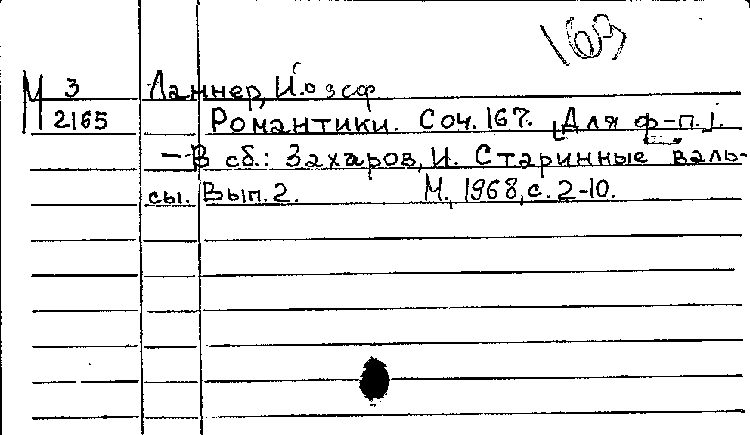 163
М 3 Ланнер, Йозеф
2165 Романтики. Соч. 167. [Для ф-п.].
— В сб.: Захаров, И. Старинные валь-
сы. Вып. 2. М., 1968, с. 2-10.